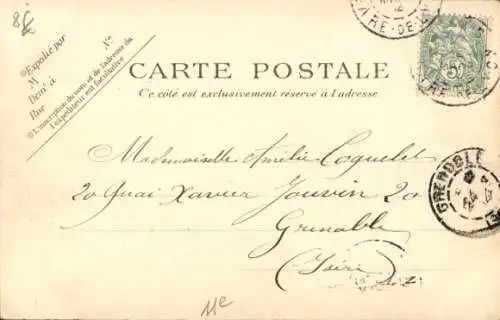 8
Expédié par
M
Demt à
Rue
No
L'inscription du nom et de l'adresse de
l'expéditeur est facultative
CARTE POSTALE
Ce côté est exclusivement réservé à l'adresse
Mademoiselle Amélie Coquelet
20 Quai Xavier Jouvin 20
Grenoble
(Isère)
GRENOBLE
11e